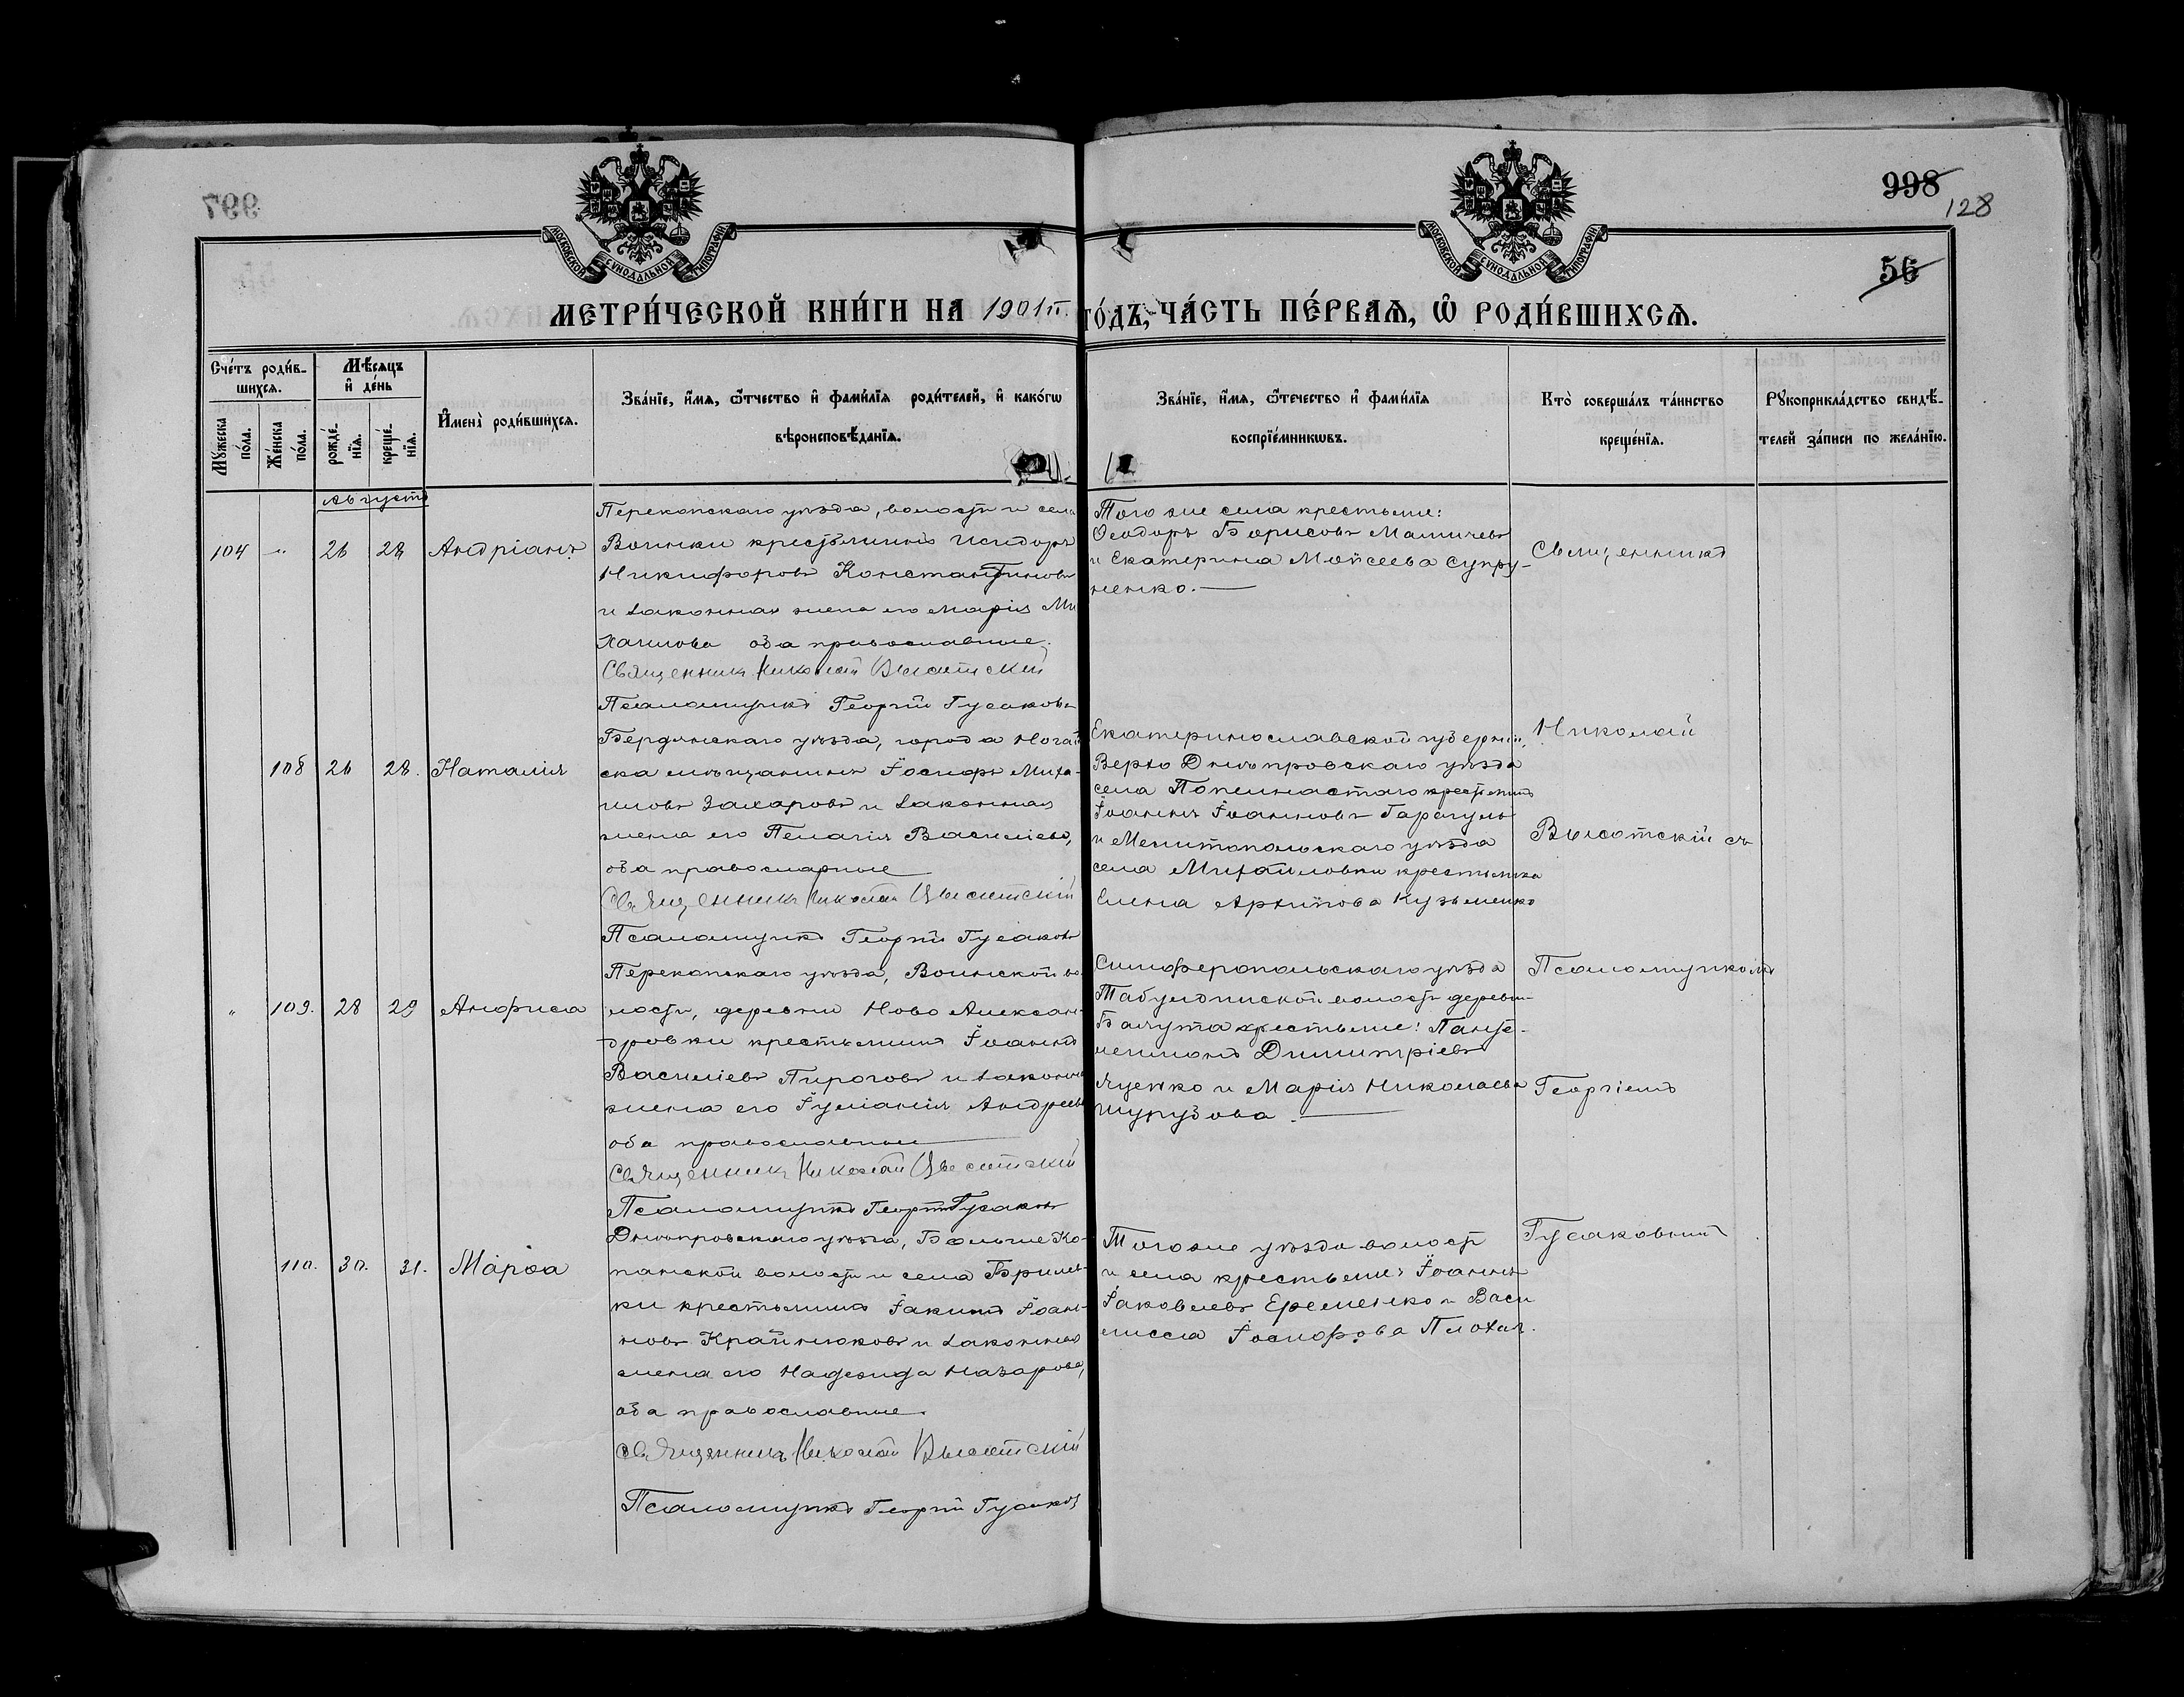 998
128
56
МОСКОВСКОЙ СѴНОДАЛЬНОЙ ТИПОГРАФІИ
МОСКОВСКОЙ СѴНОДАЛЬНОЙ ТИПОГРАФІИ
МЕТРИ́ЧЕСКОЙ КНИ́ГИ НА 1901 го́дъ, ЧА́СТЬ ПЕ́РВАѦ, Ѡ҆ РОДИ́ВШИХСѦ.
Сче́тъ роди́в-
шихсѧ.
Мꙋ́жеска по́ла.
Же́нска по́ла.
Мѣ́сѧцъ
и҆ де́нь
рожде́-
нїѧ.
креще́-
нїѧ.
И҆мена̀ роди́вшихсѧ.
Зва́нїе, и҆́мѧ, ѻ҆́тчество и҆ фами́лїѧ роди́телей, и҆ како́гѡ
вѣроисповѣ́данїѧ.
Зва́нїе, и҆́мѧ, ѻ҆те́чество и҆ фами́лїѧ
воспрїе́мникѡвъ.
Кто̀ соверша́лъ та́инство
креще́нїѧ.
Рꙋкоприкла́дство свидѣ́-
телей за́писи по жела́нїю.
Августъ
104 " 26 28 Андріанъ
Перекопскаго уѣзда, волости и села
Воинки крестьянинъ Исидоръ
Никифоровъ Константиновъ
и законная жена его Марія Ми
хаилова оба православные.
Священникъ Николай Высотскій
Псаломщикъ Георгій Гусаковъ
Того же села крестьяне:
Ѳеодоръ Борисовъ
и Екатерина Мойсеева Супру-
ненко.
Священникъ
108 26 28. Наталія
Бердянскаго уѣзда, города Ногай
ска мѣщанинъ Іосифъ Миха-
иловъ Захаровъ и законная
жена его Пелагія Василіева,
оба православные
Священникъ Николай Высотскій
Псаломщикъ Георгій Гусаковъ
Екатеринославской губерніи,
Верхо Днѣпровскаго уѣзда
села Попельнастаго крестьянинъ
Іоаннъ Іоанновъ Гарагуль
и Мелитопольскаго уѣзда
села Михайловки крестьянка
Елена Архипова Кузьменко
Николай
Высотскій съ
" 109. 28 29 Анфиса
Перекопскаго уѣзда, Воинской во-
лости, деревни Ново Алексан-
дровки крестьянинъ Іоаннъ
Василіевъ Пироговъ и законная
жена его Іуліанія Андреева
оба православные
Священникъ Николай Высотскій
Псаломщикъ Георгій Гусаковъ
Симферопольскаго уѣзда
Табулдинской волости деревни
крестьяне: Панте-
леимонъ Димитріевъ
Яценко и Марія Николаева
Шурубова.
Псаломщикомъ
Георгіемъ
110. 30. 31. Марѳа
Днѣпровскаго уѣзда, Больше Ко-
панской волости и села Брилев-
ки крестьянинъ Іакинѳъ Іоан-
новъ Крайнюковъ и законная
жена его Надежда Назарова,
оба православные.
Священникъ Николай Высотскій
Псаломщикъ Георгій Гусаковъ
Того же уѣзда волости
и села крестьяне: Іоаннъ
Іаковлевъ Еременко и Васи
лисса Іосифова Плохая.
Гусаковымъ